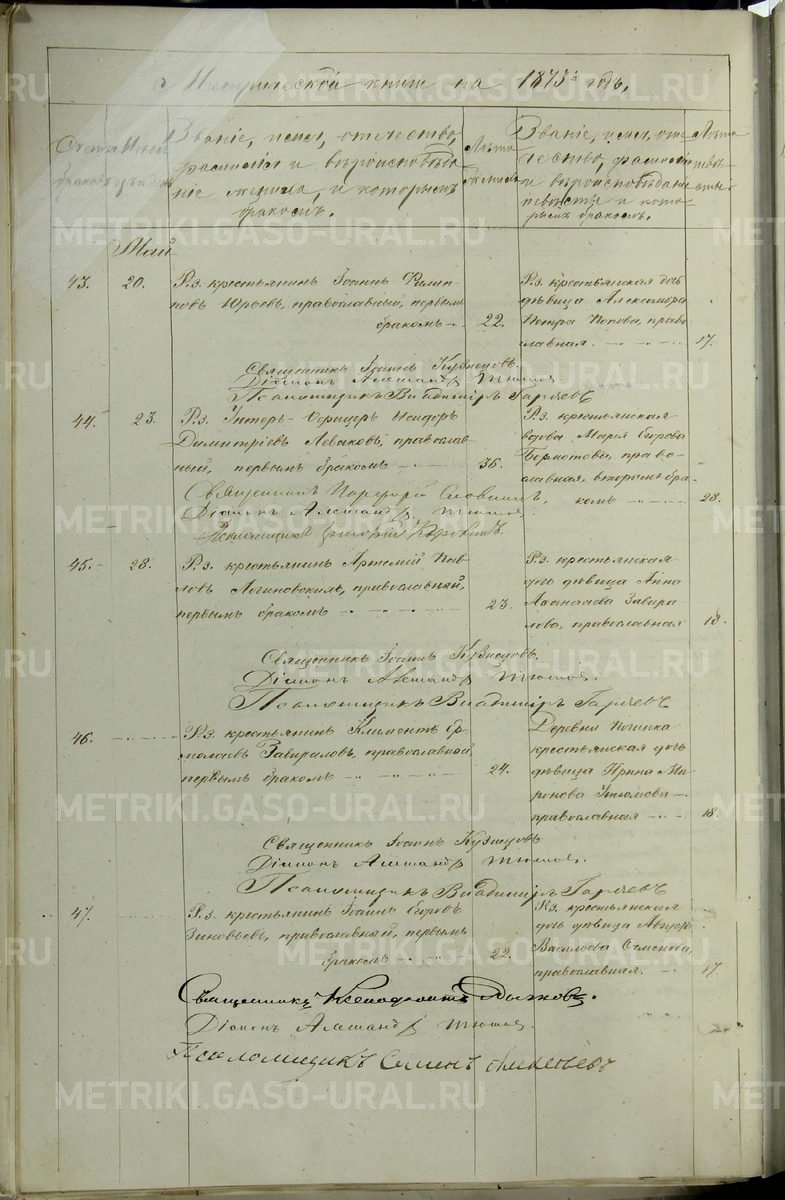 Метрической книги на 1873й годъ,
Счетъ браковъ
Званіе, имя, отчество, фамилія и вѣроисповѣданіе жениха, и которымъ бракомъ.
Лѣта жениха
Званіе, имя, отчество, фамилія и вѣроисповѣданіе невѣсты и которымъ бракомъ.
Лѣта невѣсты
Май
43. 20.
Р.з. крестьянинъ Іоаннъ
новъ Юрьевъ, православный, первымъ
бракомъ 22.
Р.з. крестьянская дочь
дѣвица Александра
Петрова Попова, право-
славная. 17.
Священникъ Іоаннъ Кузнецовъ.
Діаконъ Александръ
Псаломщикъ Владиміръ Гаряевъ
44. 23.
Р.з. Унтеръ-Офицеръ Исидоръ
Димитріевъ православ-
ный, первымъ бракомъ 36.
Р.з. крестьянская
вдова Марья Егорова
Бармотова, право-
славная, вторымъ бра-
комъ 28.
Священникъ Порфирій Словцовъ.
Діаконъ Александръ
Псаломщикъ Григорій
45. 28.
Р.з. крестьянинъ Артемій Пав-
ловъ Логиновскихъ, православный,
первымъ бракомъ 23.
Р.з. крестьянская
дочь дѣвица Анна
Афанасьева Завира-
лова, православная 18.
Священникъ Іоаннъ Кузнецовъ.
Діаконъ Александръ
Псаломщикъ Владиміръ Гаряевъ
46.
Р.з. крестьянинъ Климентъ Ер-
молаевъ Завираловъ, православный
первымъ бракомъ 24.
Деревни Починка
крестьянская дочь
дѣвица Ирина Ми-
ронова
православная 18.
Священникъ Іоаннъ Кузнецовъ
Діаконъ Александръ
Псаломщикъ Владиміръ Гаряевъ
47.
Р.з. крестьянинъ Іоаннъ Егоровъ
Зиновьевъ, православный, первымъ
бракомъ 22.
Р.з. крестьянская
дочь дѣвица
Васильева Семенова,
православная. 17
Священникъ Ксенофонтъ
Діаконъ Александръ
Псаломщикъ Семенъ Алексѣевъ
METRIKI.GASO-URAL.RU